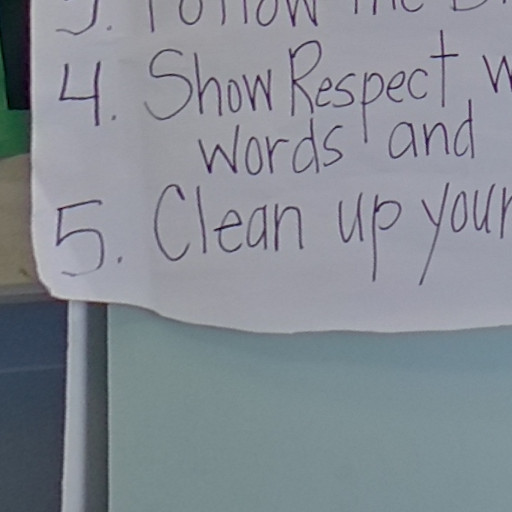 3. Follow the
4. Show Respect
words and
5. Clean up your